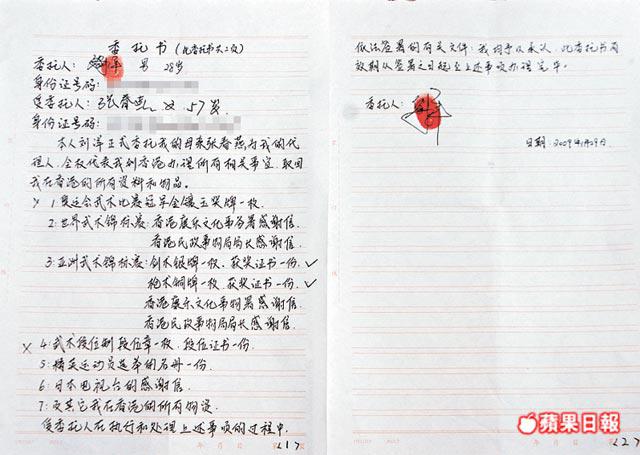 委托书(此委托书共二页)
委托人: 男 28岁
身份证号码:
受委托人:张春燕、女、57岁.
身份证号码:
本人刘洋正式委托我的母亲张春燕为我的代
理人,全权代表我到香港办理所有相关事宜,取回
我在香港的所有资料和物品。
× 1:奥运会武术比赛冠军金镶玉奖牌一枚.
2:世界武术锦标赛:香港康乐文化事务署感谢信.
香港民政事务局局长感谢信.
3:亚洲武术锦标赛:剑术银牌一枚、获奖证书一份. ✓
枪术铜牌一枚、获奖证书一份. ✓
香港康乐文化事务署感谢信
香港民政事务局局长感谢信.
× 4:武术段位制段位章一枚、段位证书一份.
5:精英运动员选举的名册一份.
6:日本电视台的感谢信.
7:及其它我在香港的所有物资.
受委托人在执行和处理上述事项的过程中.
年 月 日 第(1)页
依法签署的有关文件:我均予以承认,此委托书有
效期从签署之日起至上述事项办理完毕。
委托人:
日期:2009年1月29日.
年 月 日 第(2)页
蘋果日報